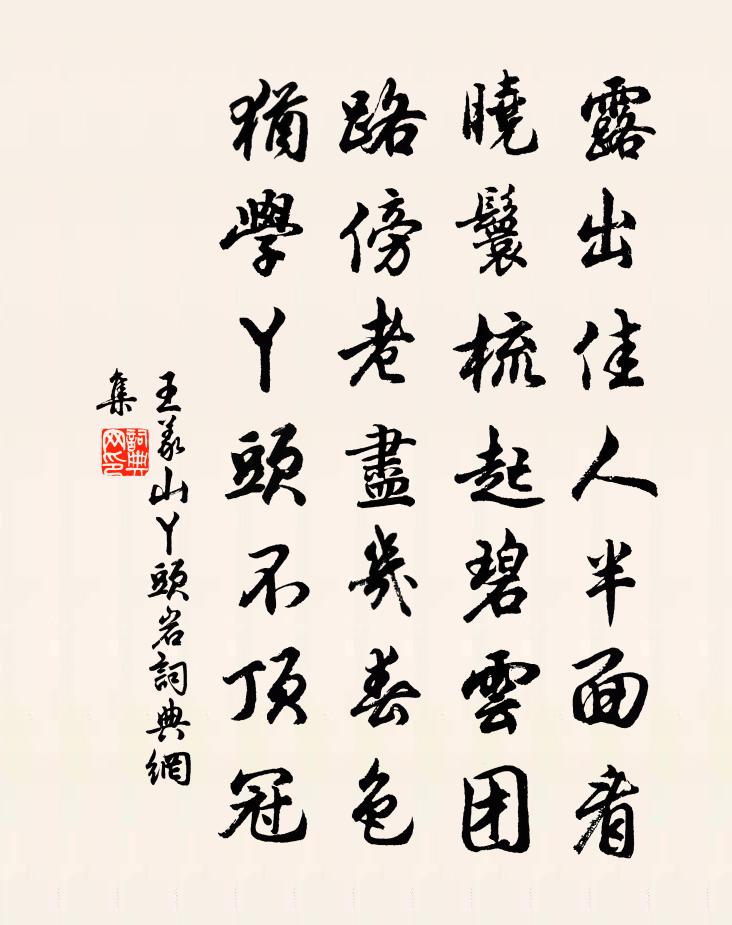 露出佳人半面看
曉鬟梳起碧雲団
路傍老盡幾春色
猶學丫頭不頂冠
王義山丫頭岩詞典網
集
詞典
网印